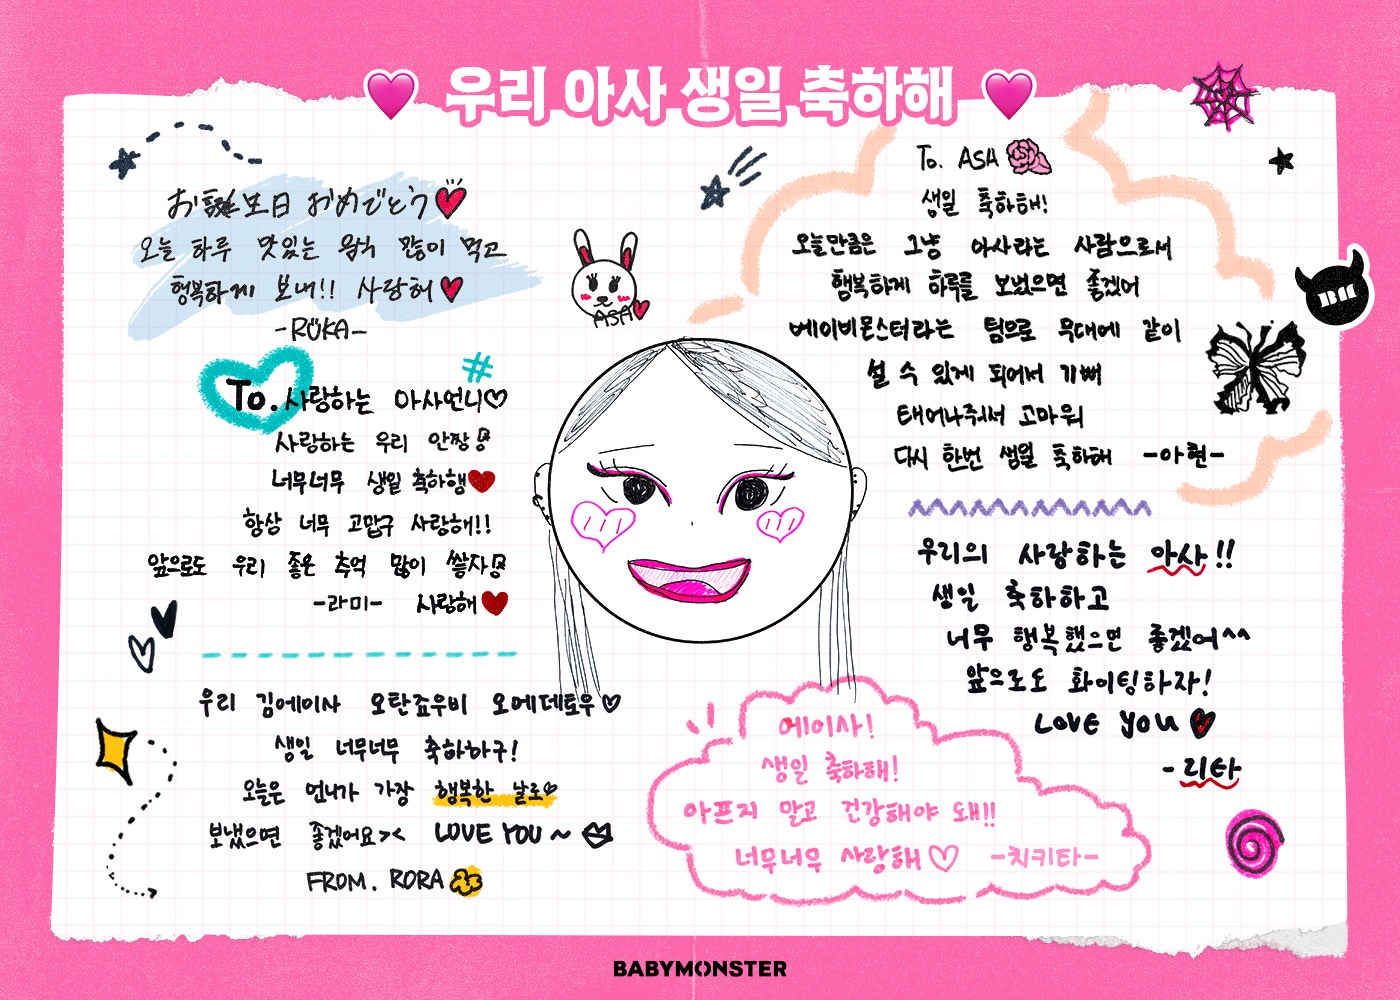 우리 아사 생일 축하해
お誕生日 おめでとう
오늘 하루 맛있는 음식 많이 먹고
행복하게 보내!! 사랑해
-RUKA-
ASA
#
To. 사랑하는 아사언니♡
사랑하는 우리 안짱
너무너무 생일 축하행
항상 너무 고맙구 사랑해!!
앞으로도 우리 좋은 추억 많이 쌓자
-라미- 사랑해
우리 김에이사 오탄죠우비 오메데토우♡
생일 너무너무 축하하구!
오늘은 언니가 가장 행복한 날로
보냈으면 좋겠어요>< LOVE YOU ~
FROM. RORA
To. ASA
생일 축하해!
오늘만큼은 그냥 아사라는 사람으로서
행복하게 하루를 보냈으면 좋겠어
베이비몬스터라는 팀으로 무대에 같이
설 수 있게 되어서 기뻐
태어나줘서 고마워
다시 한번 생일 축하해 -아현-
우리의 사랑하는 아사!!
생일 축하하고
너무 행복했으면 좋겠어^^
앞으로도 화이팅하자!
LOVE YOU
-리타
에이사!
생일 축하해!
아프지 말고 건강해야 돼!!
너무너무 사랑해♡ -치키타-
BABYMONSTER